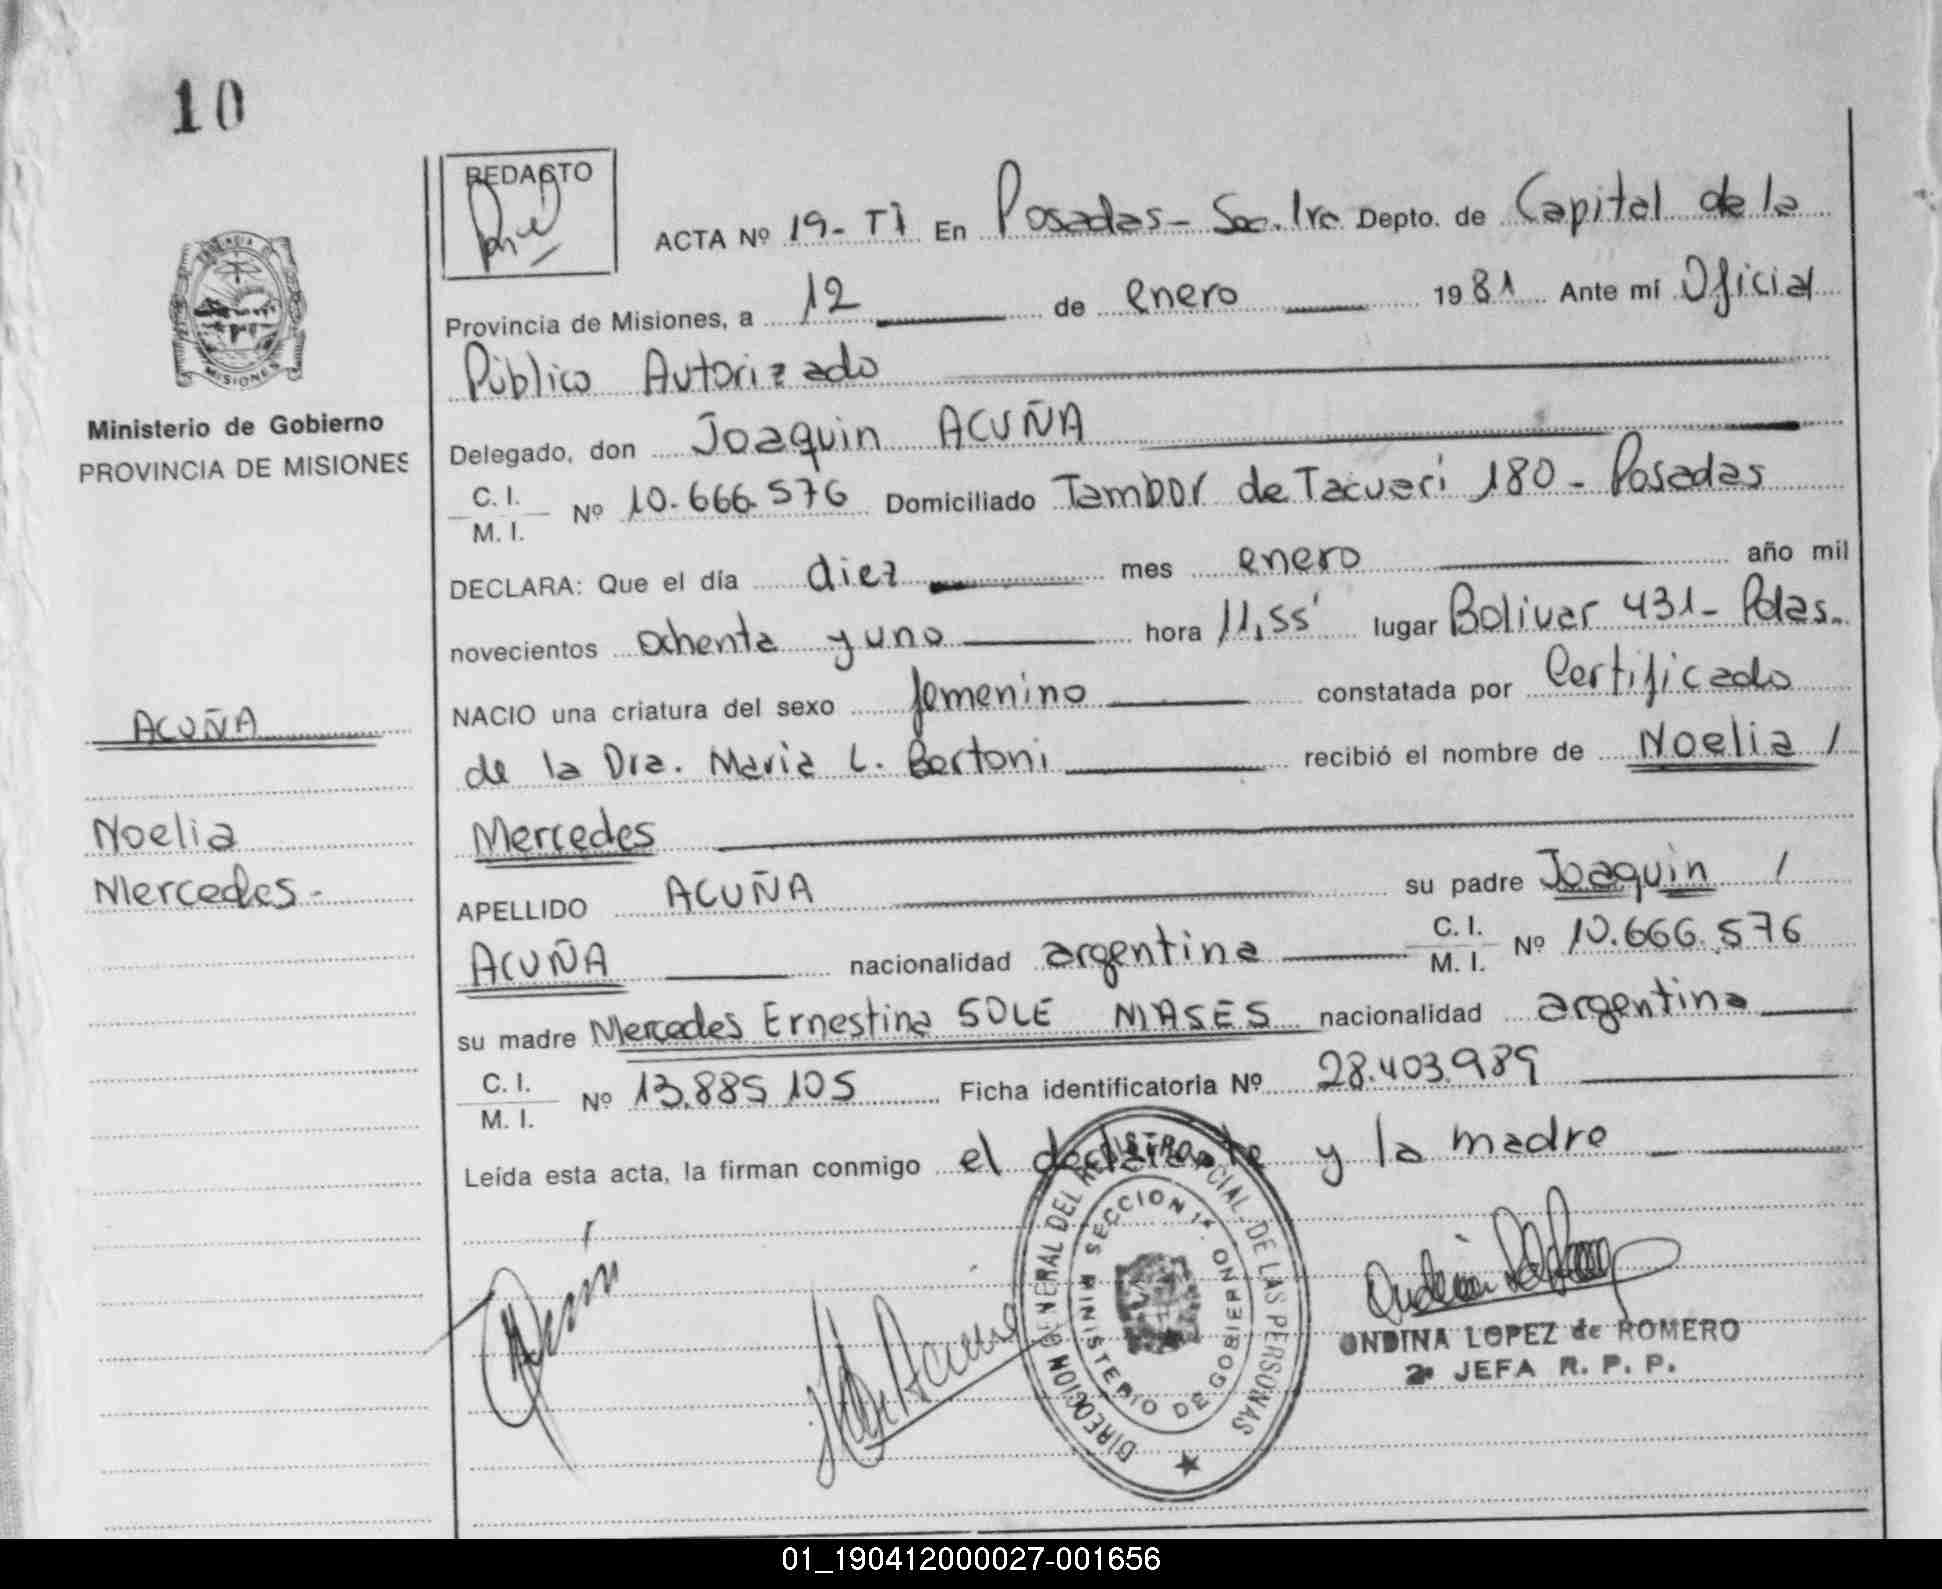 10
REDACTO
ACTA Nº 19-TI En Posadas- Sec. 1ra Depto. de Capital de la
Provincia de Misiones, a 12 de enero 1981 Ante mí Oficial
Público Autorizado
MISIONES
Ministerio de Gobierno
PROVINCIA DE MISIONES
Delegado, don Joaquin ACUÑA
C. I.
M. I. Nº 10.666.576 Domiciliado Tambor de Tacuari 180 - Posadas
DECLARA: Que el día diez mes enero año mil
novecientos ochenta y uno hora 11,55' lugar Bolivar 431- Pdas.
NACIO una criatura del sexo femenino constatada por Certificado
de la Dra. Maria L. Bertoni recibió el nombre de Noelia /
Mercedes
ACUÑA
Noelia
Mercedes-
APELLIDO ACUÑA su padre Joaquin /
ACUÑA nacionalidad argentina C. I.
M. I. Nº 10.666.576
su madre Mercedes Ernestina SOLE MASES nacionalidad argentina
C. I.
M. I. Nº 13.885.105 Ficha identificatoria Nº 28.403.989
Leída esta acta, la firman conmigo el declarante y la madre
DIRECCION GENERAL DEL REGISTRO PCIAL. DE LAS PERSONAS
SECCION 1ª.
MINISTERIO DE GOBIERNO
ONDINA LOPEZ de ROMERO
2ª JEFA R. P. P.
01_190412000027-001656